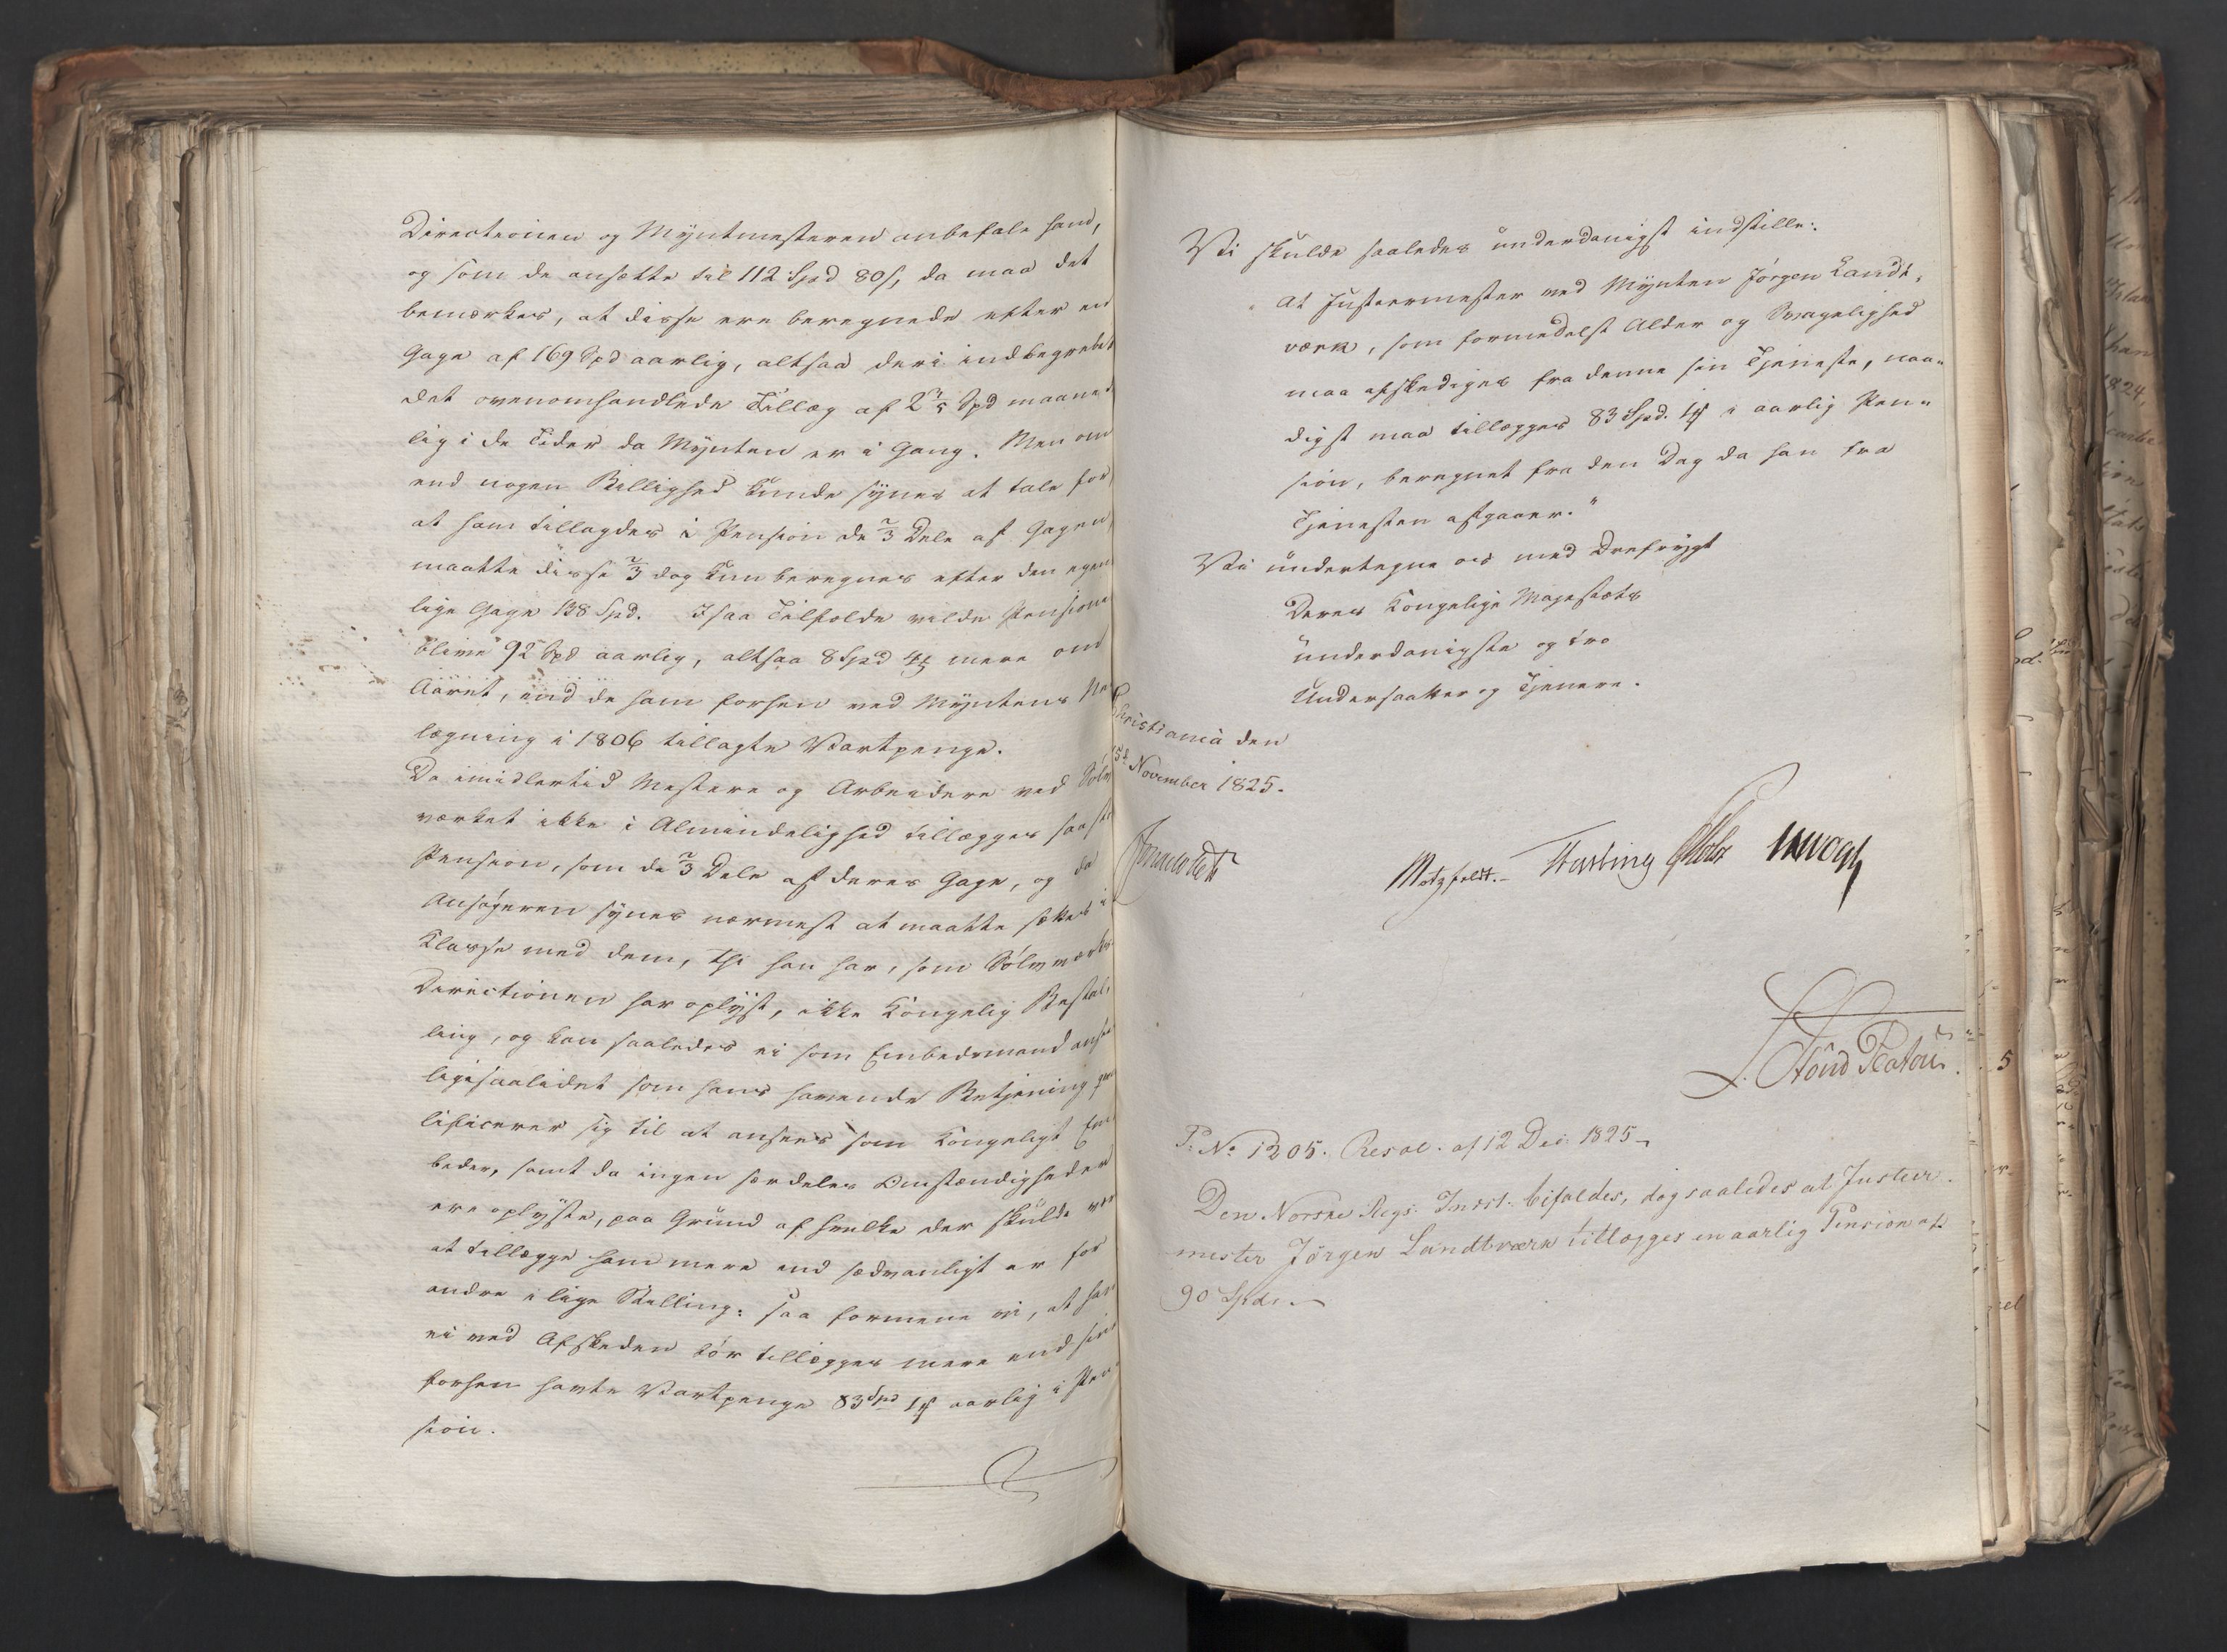 Directionen og Myntmesteren anbefale ham,
og som de ansætte til 112 Spd 80 s, da maa det
bemærkes, at disse ere beregnede efter en
Gage af 169 Spd aarlig, altsaa deri indbegrebet
det ovenomhandlede Tillæg af 2 3/5 Spd maaned
lig i de Tider da Mynten er i Gang. Men om
end nogen Billighed kunde synes at tale for
at ham tillagdes i Pension de 2/3 Dele af Gagen,
maatte disse 2/3 dog kun beregnes efter den egent
lige Gage 138 Spd. I saa Tilfælde vilde Pensionen
blive 92 Spd aarlig, altsaa 8 Spd mere om
Aaret, end de ham forhen ved Myntens Ned
lægning i 1806 tillagte Vartpenge.
Da imidlertid Mestere og Arbeidere ved Sølv
værket ikke i Almindelighed tillægges saa stor
Pension, som de 2/3 Dele af deres Gage, og da
Ansøgeren synes nærmest at maatte sættes i
Klasse med dem, thi han har, som Sølvværks
Directionen har oplyst, ikke Kongelig Bestal,
ling, og kan saaledes ei som Embedsmand ansees
ligesaalidet som hans havende Betjening qva
lificerer sig til at ansees som Kongeligt Em
bede, samt da ingen særdeles Omstændigheder
ere oplyste, paa Grund af hvilke der skulde være
at tillægge ham mere end sædvanligt er for
andre i lige Stilling: saa formene vi, at han
ei ved Afskeden bør tillægges mere end sine
forhen havte Vartpenge 83 Spd aarlig i Pen
sion.
Vi skulde saaledes underdanigst indstille:
At Justeermester ved Mynten Jørgen Landt,
værk, som formedelst Alder og Svagelighed
maa afskediges fra denne sin Tjeneste, naa-
digst maa tillægges 83 Spd. i aarlig Pen-
sion, beregnet fra den Dag da han fra
Tjenesten afgaaer."
Vi undertegne os med Ærefrygt
Deres Kongelige Majestæts
underdanigste og tro
Undersaatter og Tjenere.
Christiania den
November 1825.
Motzfeldt. Fasting Holst
P. No 1205. Resol. af 12 Dec 1825
Den Norske Regs. Indst. bifaldes, dog saaledes at Justeer-
mester Jörgen Landtværk tillægges en aarlig Pension af
90 Spdr.